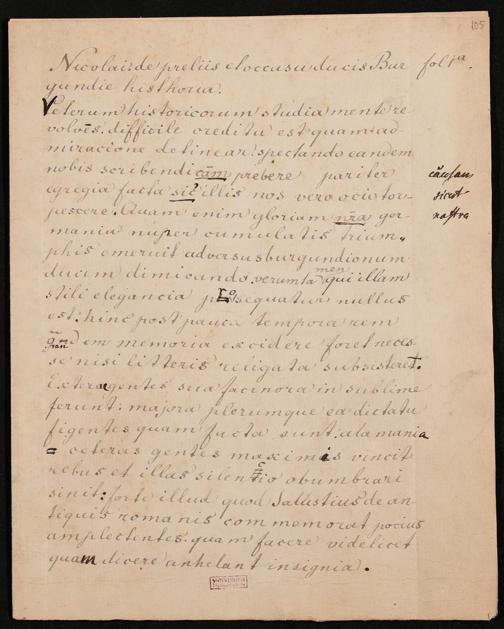 105
Nicolai de preliis et occasu ducis Bur fol 1ª.
gundie histhoria.
Veterum historicorum studia mente re
volvēs difficile creditu est quam ad
miracione detinear: spectando eandem
nobis scribendi cām prebere pariter causam
egregia facta sic illis nos vero ocio tor- sicut
pescere. Quam enim gloriam nr̄a ger- nostra
mania nuper cumulatis trium,
phis emeruit adversus burgundionum
ducem dimicando. verumtamen qui illam
stili elegancia prosequatur nullus
est: hinc post pauca tempora rem
em memoria excidere foret neces
se nisi litteris religata subsisteret.
Extera gentes sua facinora in sublime
ferunt: majora plerumque ea dictatu
figentes quam facta sunt: alamania
= ceteras gentes maximis vincit
rebus et illas silentio obumbrari
sinit: forte illud quod Salustius de an-
tiquis romanis commemorat pocius
amplectentes quam facere videlicet
quam dicere anhelant insignia.